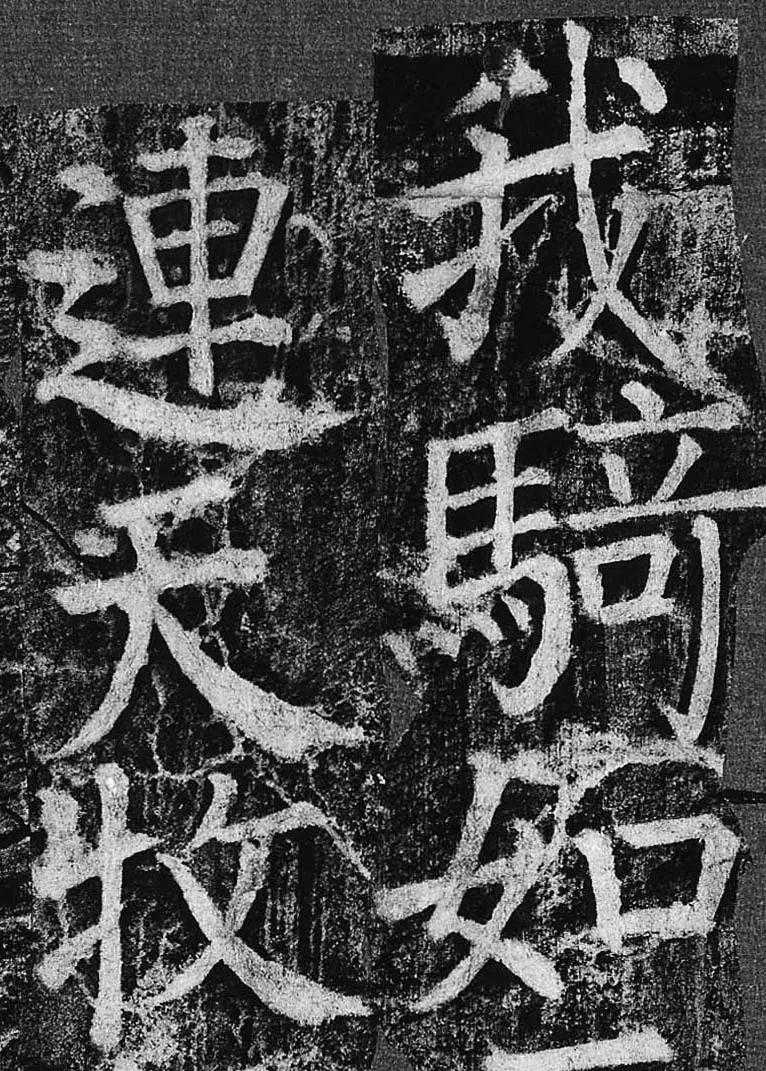 我騎如
連天牧